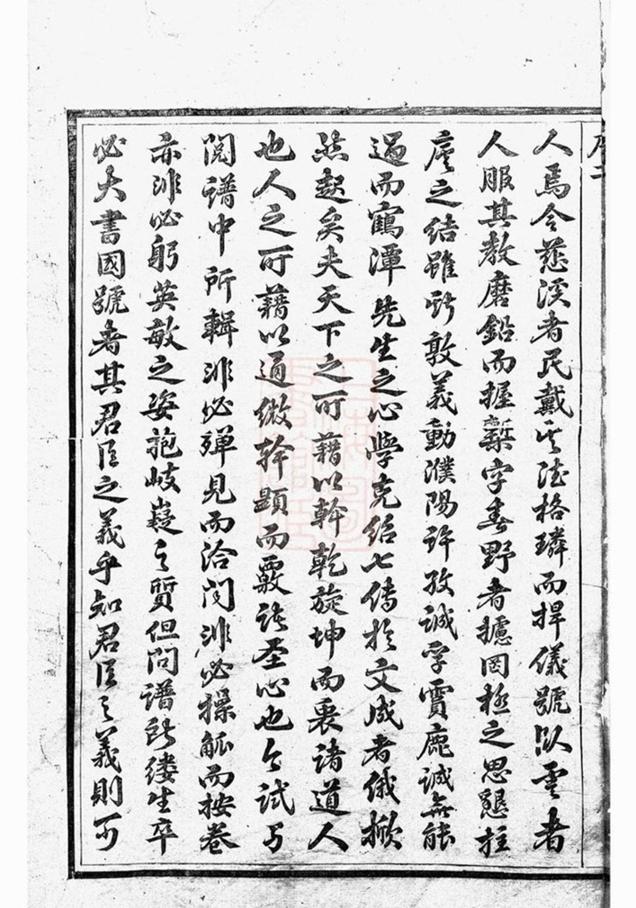 序二
人焉今慈溪者民戴其德格璘而捍儀號臥雲者
人服其教磨鉛而握槧字委野者據罔極之思懇拄
虔之結雖
敦義動濮陽許孜誠孚
鹿誠無能
過而鶴潭先生之心學克紹七傳於文成者儀掀
然起矣夫天下之所藉以斡乾旋坤而裏諸道人
也人之所藉以通微斡顯而
諸聖心也今試与
閱譜中所輯非必殫見而洽聞非必操觚而按卷
亦非必躬英敏之姿抱岐嶷之質但問譜所縷生卒
必大書國號者其君臣之義乎知君臣之義則可